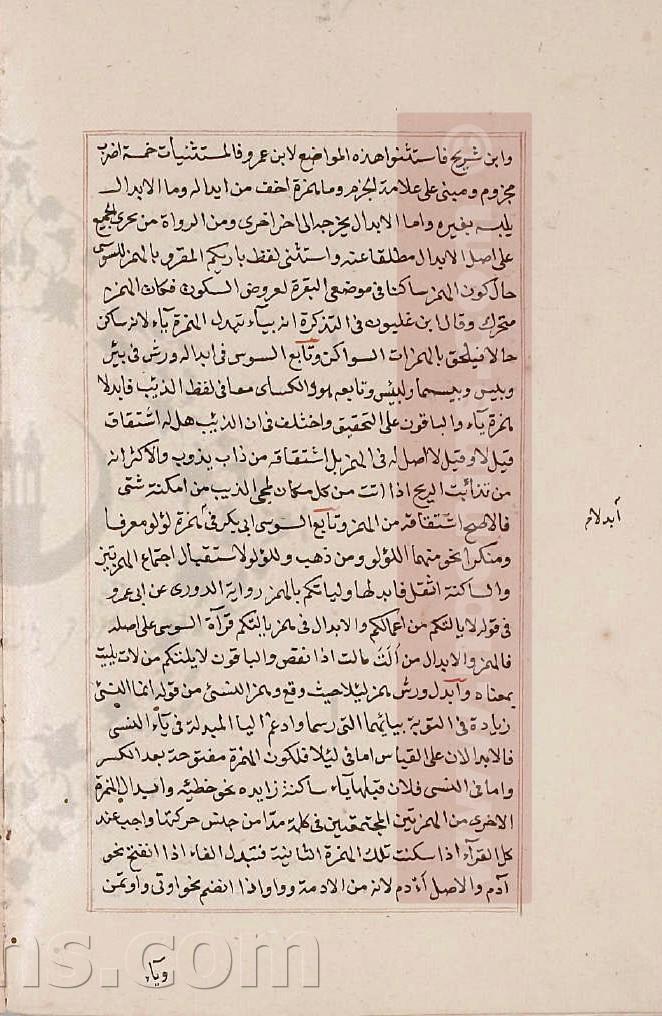 وابن شريح فاستثنوا هذه المواضع لابن عمرو فالمستثنيات خمسة اضرب
مجزوم ومبنى على علامة الجزم وما همزة اخف من ابداله وما الابدال
يلبسه بغيره واما الابدال يخرجه الى اخر اخرى ومن الرواة من يجرى الجميع
على اصل الابدال مطلقا عنه واستثنى لفظ بارئكم المقرو بالهمز للسوسى
حال كون الهمز ساكنا فى موضعى البقرة لعروض السكون فكان الهمز
متحرك وقال ابن غلبون فى التذكرة انه بياء تبدل الهمزة ياء لانه ساكن
حالا فيلحق بالهمزات السواكن وتابع السوسى فى ابداله ورش فى بئر
وبئس وبئسما ولبئس وتابعه هو والكساى معا فى لفظ الذئب فابدلا
همزة ياء والباقون على التحقيق واختلف فى ان الذئب هل له اشتقاق
قيل لا وقيل لا اصل له فى الهمز بل اشتقاقه من ذاب يذوب والاكثر انه
من تذائبت الريح اذا اتت من كل مكان لمجى الذيب من امكنة شتى
فالاصح اشتقاقه من الهمز وتابع السوسى ابى بكر فى همزة لؤلؤ معرفا
ومنكرا نحو منهما اللؤلؤ ومن ذهب ولؤلؤ لاستقبال اجتماع الهمزتين
والساكنة اثقل فابدلها وليأتكم بالهمز رواية الدورى عن ابى عمرو
فى قوله لا يالتكم من اعمالكم والابدال فى همز يالتكم قرآة السوسى على اصله
فالهمز والابدال من الت مالت اذا نقص والباقون لا يلتكم من لات يليت
بمعناه وابدل ورش همز لئلا حيث وقع وهمز النسئ من قوله انما النسئ
زيادة فى التوبة بيائهما التى رسما وادغم اليا المبدلة فى ياء النسى
فالابدالان على القياس اما فى لئلا فلكون الهمزة مفتوحة بعد الكسر
واما فى النسى فلان قبلها ياء ساكنة زايده نحو خطيئه وابدال الهمزة
الاخرى من الهمزتين المجتمعتين فى كلمة مدا من جنس حركتها واجب عند
كل القرآء اذا سكنت تلك الهمزة الثانية فتبدل الفاء اذا انفتح نحو
آدم والاصل أءدم لانه من الادمة وواوا اذا انضم نحو اوتى واوتمن
أبدلاه
وياء
ns.com